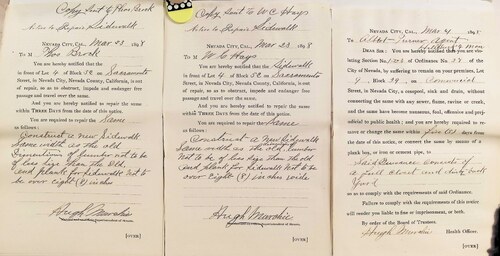 Copy Sent to Thos Brock
Notice to Repair Sidewalk
NEVADA CITY, CAL., Mar 23 1898
To M Thos Brock
You are hereby notified that the sidewalk
in front of Lot 4 of Block 32 on Sacramento
Street, in Nevada City, Nevada County, California, is out
of repair, so as to obstruct, impede and endanger free
passage and travel over the same.
And you are hereby required to repair the same
within THREE DAYS from the date of this notice.
You are required to repair the same
as follows:
Construct a new Sidewalk
Same width as the old
of lumber not to be
of less dige than the Old
and plank for sidewalk Not to
be over eight (8) inches
Hugh Murchie
[OVER]
Copy Sent to W C Hays
Notice to Repair Sidewalk
NEVADA CITY, CAL., Mar 23 1898
To M W C Hays
You are hereby notified that the Sidewalk
in front of Lot 4 of Block 32 on Sacramento
Street, in Nevada City, Nevada County, California, is out
of repair, so as to obstruct, impede and endanger free
passage and travel over the same.
And you are hereby required to repair the same
within THREE DAYS from the date of this notice.
You are required to repair the Same
as follows:
Construct a new Sidewalk
Same width as the old. lumber
Not to be of less dige than the old
and plank for Sidewalk Not to
be over eight (8) ins wide
Hugh Murchie
[OVER]
NEVADA CITY, CAL., Mar 4 1898
To Abbot Turner Agent
DEAR SIR: You are hereby notified that you are vio-
lating Section of Ordinance No. of the
City of Nevada, by suffering to remain on your premises, Lot
4, Block 39, on Commercial
Street, in Nevada City, a cesspool, vick and drain, without
connecting the same with any sewer, flume, ravine or creek,
and the same have become unclean, foul, offensive and pre-
judicial to public health; and you are hereby required to re-
move or change the same within five (5) days from the
date of this notice, or convert the same by means of a
plank box, or iron or cement pipe, to
Said Nuisance consists of
a full closet and dirty back
Yard
so as to comply with the requirements of said Ordinance.
Failure to comply with the requirements of this notice
will render you liable to fine or imprisonment, or both.
By order of the Board of Trustees.
Hugh Murchie Health Officer.
[OVER]